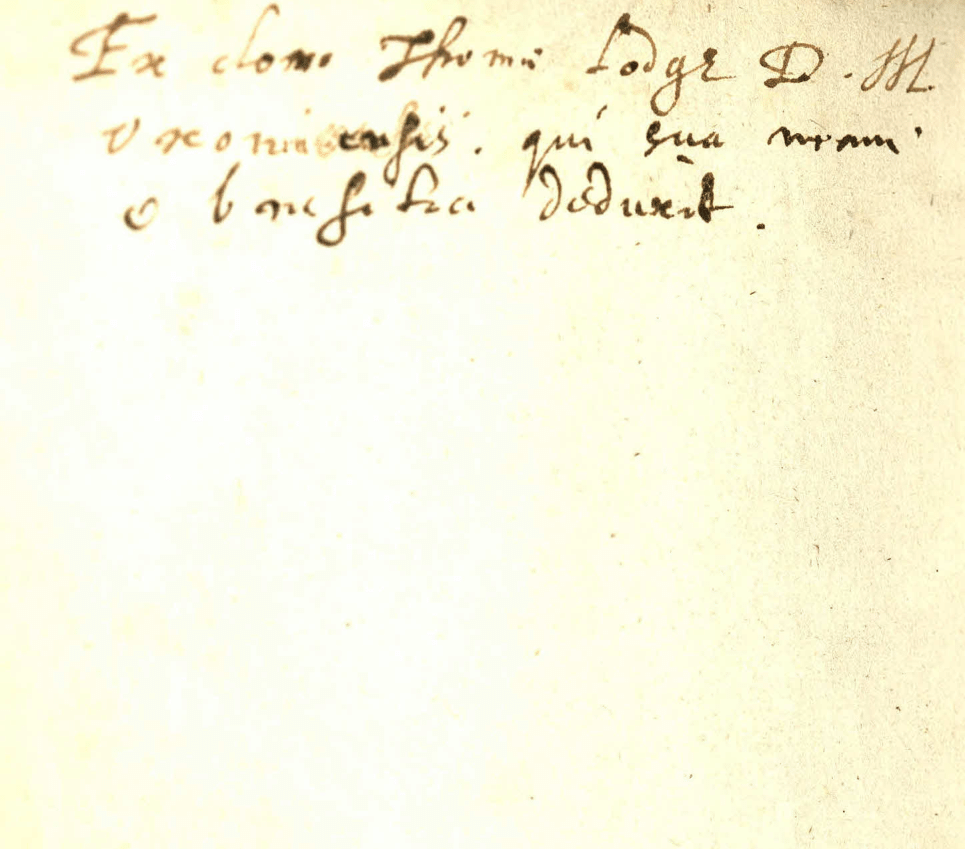 Ex dono Thomæ Lodge D. M
Oxoniensis. qui sua manu
deduxit.